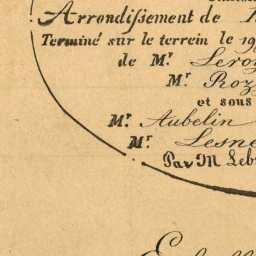 Arrondissement de
Terminé sur le terrein le 19
de Mr. Leroy
Mr. Roz
et sous
Mr. Aubelin
Mr. Lesne
Par M Leb